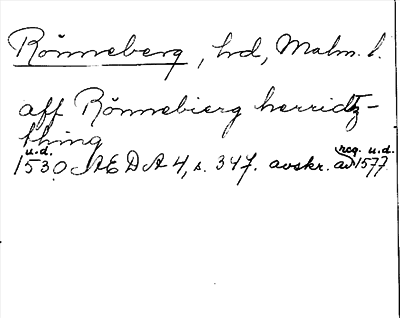 Rönneberg, hrd, Malm. l.
aff Rönnebierg herridtz-
thing
u.d. reg. u.d.
1530 AEDA 4, s. 347. avskr. av 1577